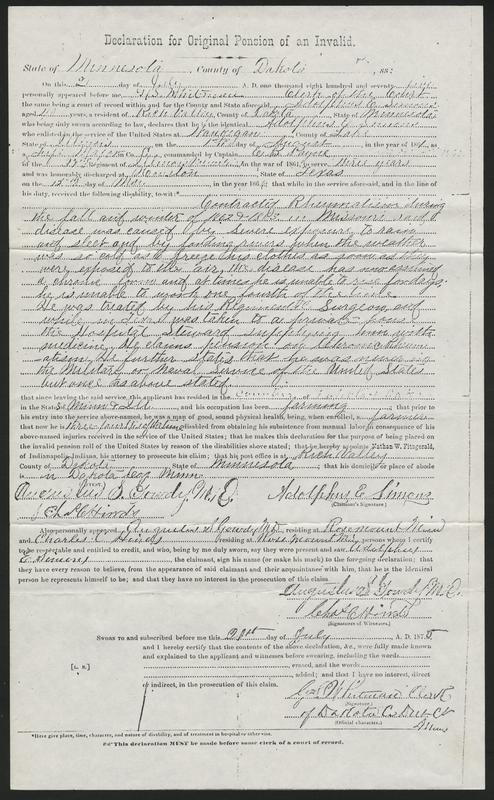 Declaration for Original Pension of an Invalid.
State of Minnesota, County of Dakota, ss:
On this day of July A. D. one thousand eight hundred and seventy five
personally appeared before me, Clerk of the Court
the same being a court of record within and for the County and State aforesaid, Adolphus E. Simons
aged years, a resident of Rich Valley, County of Dakota State of Minnesota
who being duly sworn according to law, declares that he is the identical Adolphus E. Simons
who enlisted in the service of the United States at Waukegan County of Lake
State of Illinois on the day of August in the year 186
as a in Co., commanded by Captain
of the Regiment of Illinois in the war of 1861, to serve three years
and was honorably discharged at Houston State of Texas
on the day of May in the year 186 ; that while in the service aforesaid, and in the line of
his duty, received the following disability, to wit:*
Contracted Rheumatism during
the fall and winter of 1862 & 1863 in Missouri said
disease was caused by severe exposure to rain
and sleet and by fording rivers when the weather
was so cold as to freeze his clothes as soon as they
were exposed to the air, the disease has now assumed
a chronic form and at times he is unable to rise for days.
he is unable to work one fourth of the time.
He was treated by his Regimental Surgeon and
while in was taken to a private house
the Hospital Steward supplying him with
medicine. He claims pension on
atism. He further states that he was never in
the Military or Naval Service of the United States
but once as above stated.
that since leaving the said service, this applicant has resided in the
in the State Minn & Ill and his occupation has been farming; that prior to
his entry into the service above-named, he was a man of good, sound physical health, being, when enrolled, a farmer
that now he is three fourths of the time disabled from obtaining his subsistence from manual labor in consequence of his
above-named injuries received in the service of the United States; that he makes this declaration for the purpose of being placed on
the invalid pension roll of the United States by reason of the disabilities above stated; that he hereby appoints Nathan W. Fitzgerald,
of Indianapolis, Indiana, his attorney to prosecute his claim; that his post office is at Rich Valley
County of Dakota State of Minnesota; that his domicile or place of abode
is in Dakota Co Minn.
Augustus S. Gowdy M.D.
Chas C Hinds
Adolphus E. Simons
(Claimant's Signature.)
Also personally appeared Augustus S Gowdy MD residing at Rosemount Minn
and Charles C. Hinds residing at Rosemount Minn, persons whom I certify
to be respectable and entitled to credit, and who, being by me duly sworn, say they were present and saw Adolphus
E Simons the claimant, sign his name (or make his mark) to the foregoing declaration; that
they have every reason to believe, from the appearance of said claimant and their acquaintance with him, that he is the identical
person he represents himself to be; and that they have no interest in the prosecution of this claim.
Augustus S. Gowdy M.D.
Chas C Hinds
(Signatures of Witnesses.)
Sworn to and subscribed before me this day of July A. D. 1875
and I hereby certify that the contents of the above declaration, &c., were fully made known
and explained to the applicant and witnesses before swearing, including the words
erased, and the words
added; and that I have no interest, direct
or indirect, in the prosecution of this claim.
[L. S.]
Whitman Clerk
(Signature.)
of Dakota Co Dist Ct
(Official character.)
Minn
*Here give place, time, character, and nature of disability, and of treatment in hospital or otherwise.
This declaration MUST be made before some clerk of a court of record.